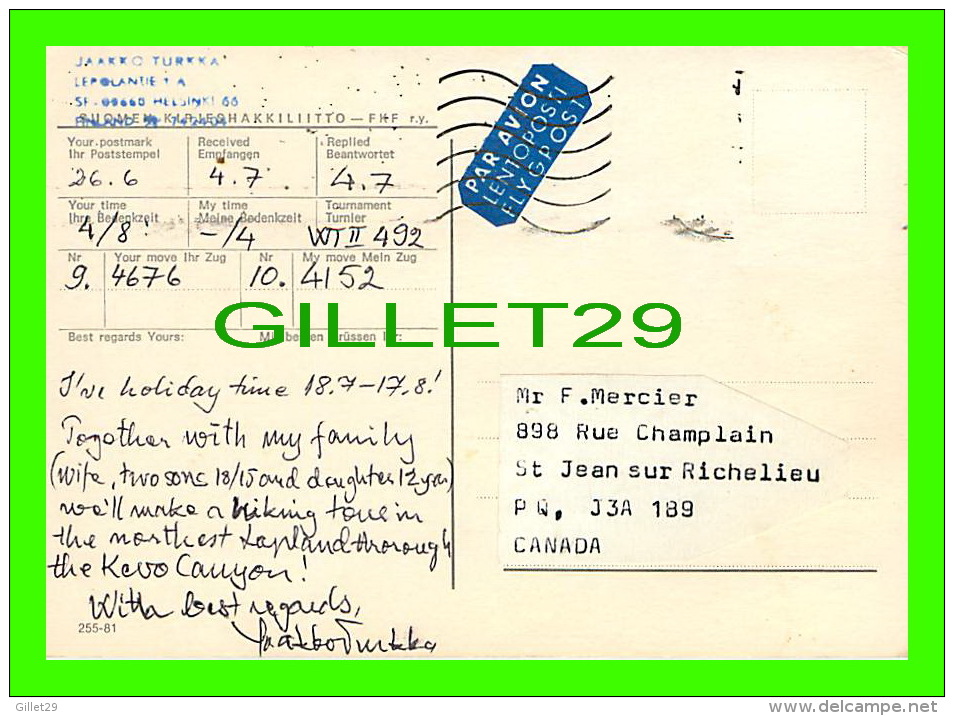 JAAKKO TURKKA
LEPOLANTIE 1 A
SF-00660 HELSINKI 66
FINLAND
SUOMEN KIRJESHAKKILIITTO — FKF r.y.
Your postmark Received Replied
Ihr Poststempel Empfangen Beantwortet
26.6 4.7 4.7
Your time My time Tournament
Ihre Bedenkzeit Meine Bedenkzeit Turnier
4/8! -/4 WT II 492
Nr Your move Ihr Zug Nr My move Mein Zug
9. 4676 10. 4152
Best regards Yours:
GILLET29
I've holiday time 18.7-17.8!
Together with my family
(wife, two sons 18/15 and daughter 12 year)
we'll make a hiking tour in
the northest Lapland thorough
the Kevo Canyon!
With best regards,
Jaakko Turkka
255-81
PAR AVION
LENTOPOSTI
FLYGPOST
Mr F.Mercier
898 Rue Champlain
St Jean sur Richelieu
PQ, J3A 189
CANADA
Gillet29
www.delcampe.net